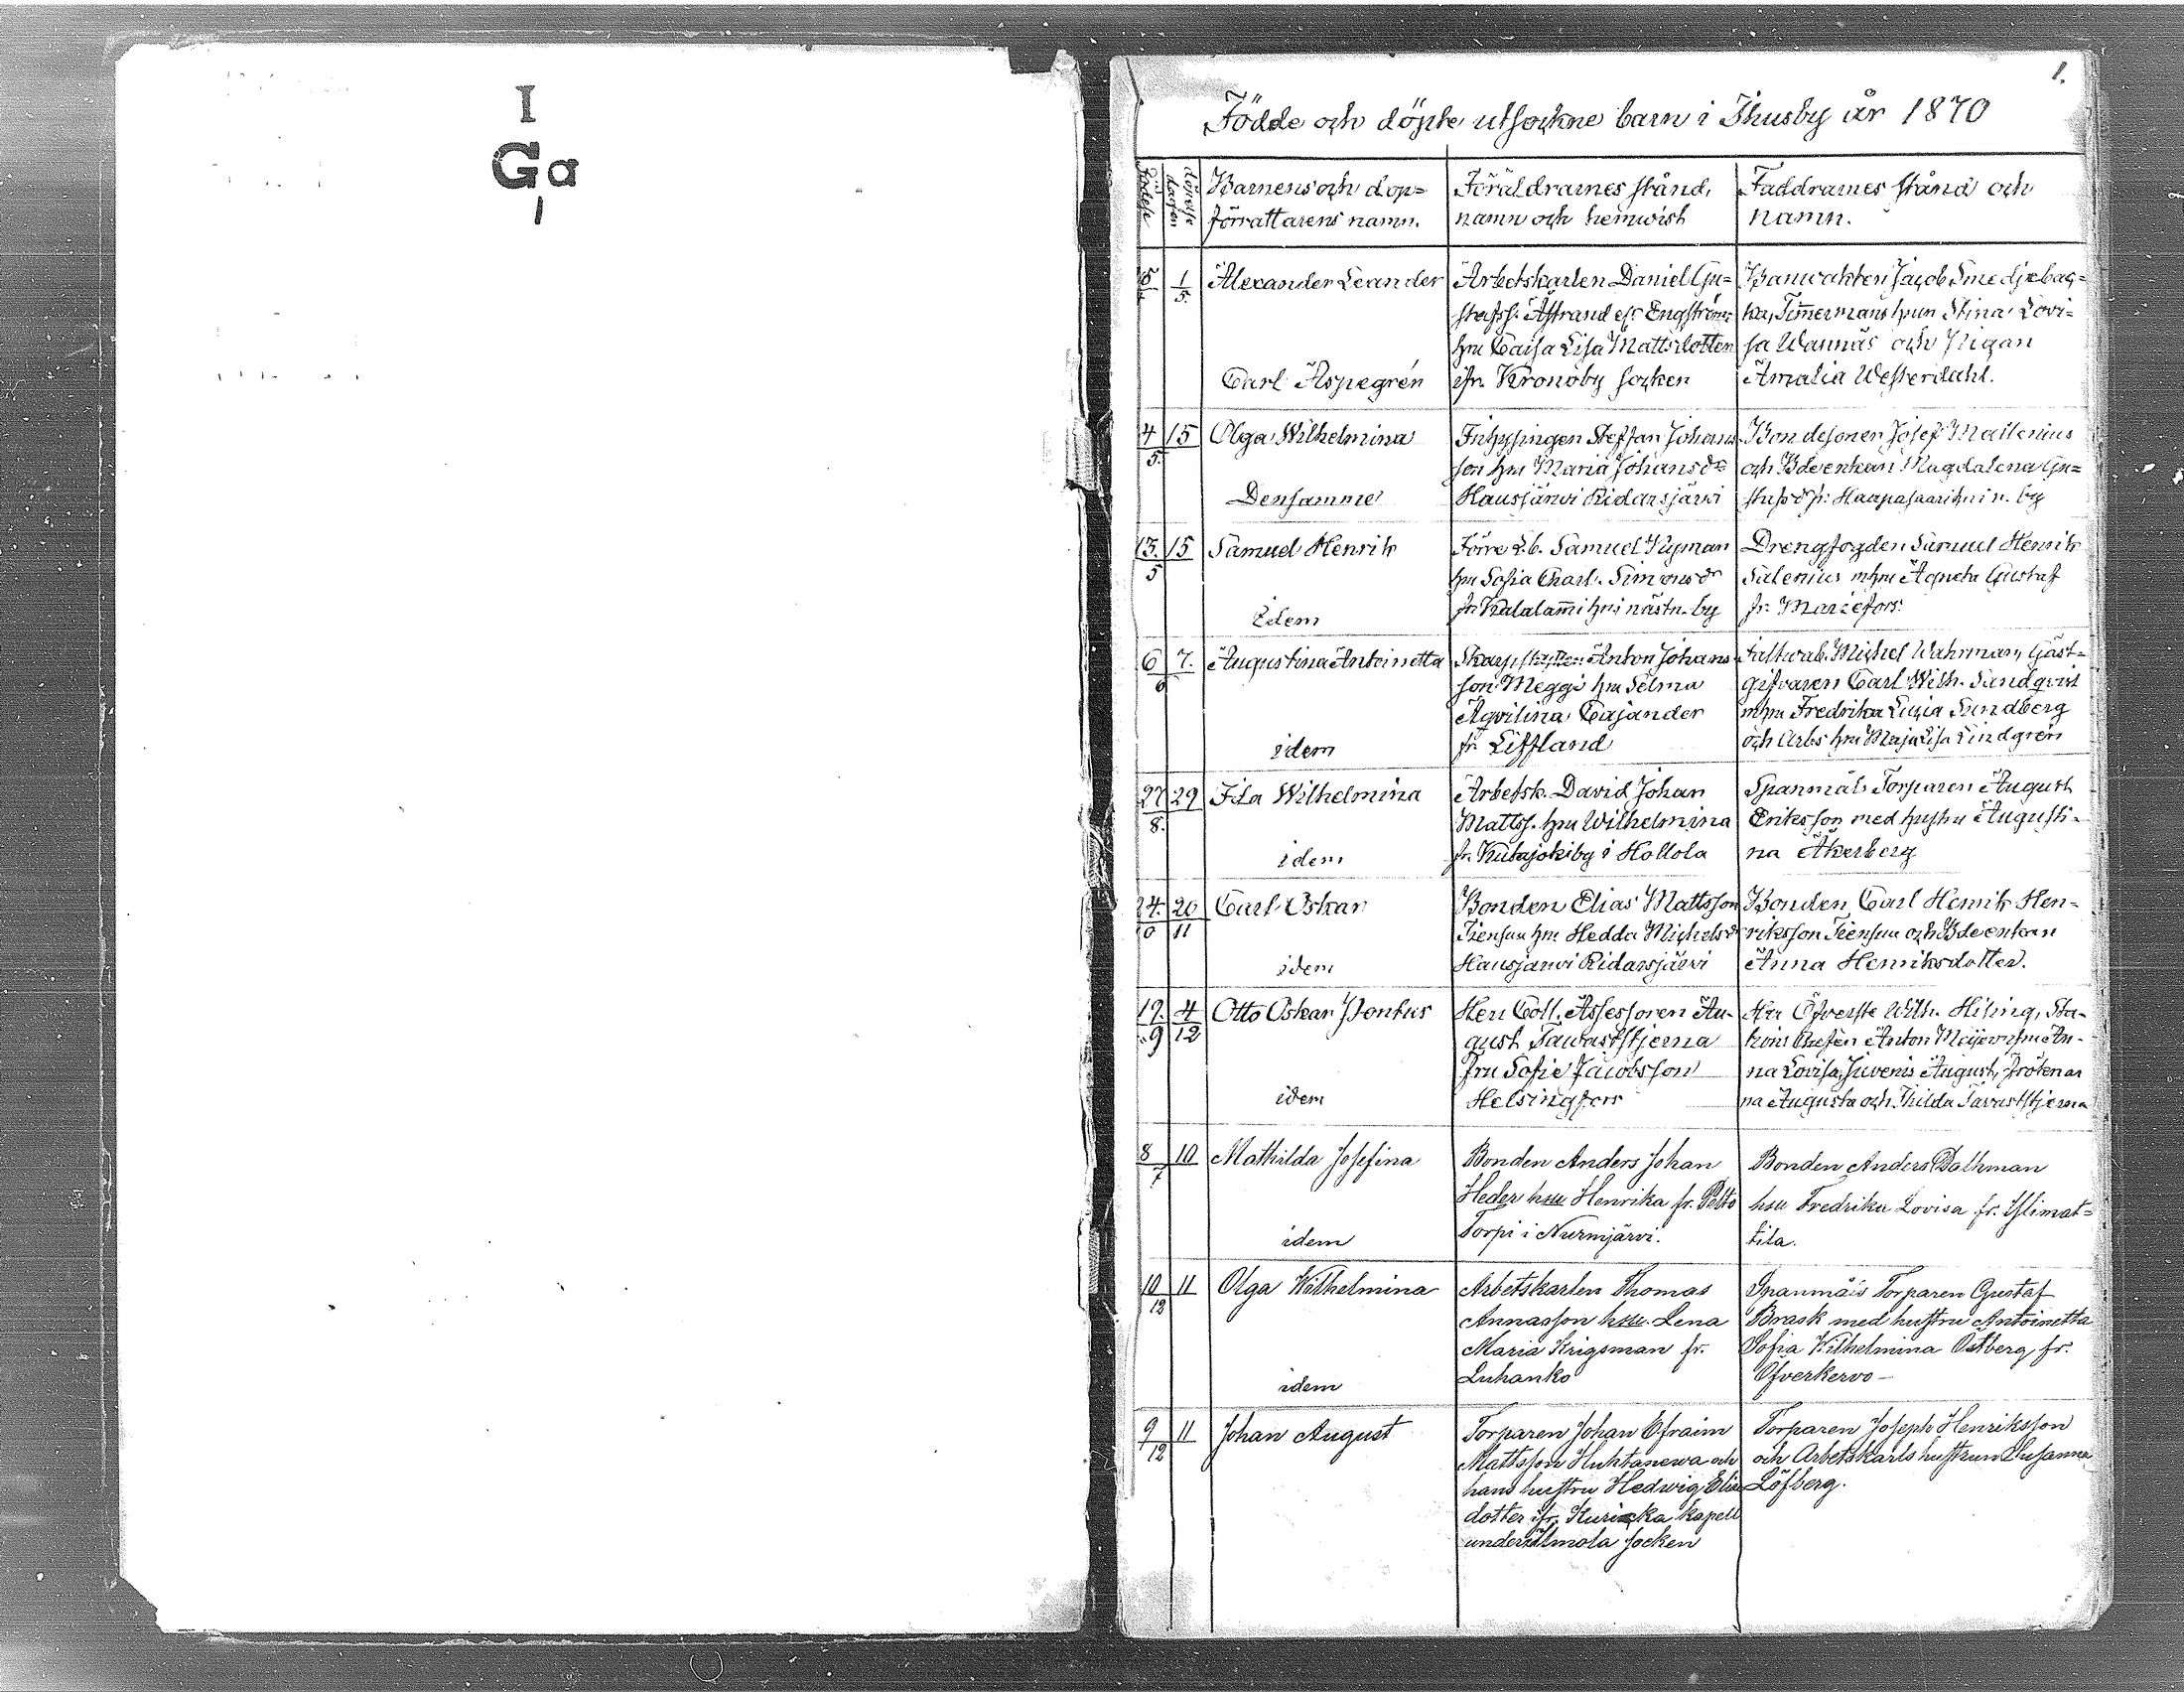 I
Ga
1
1.
Födde och döpte utsockne barn i Thusby år 1870
Födelse
döpelse
dagen
Barnens och dop=
förrättarens namn.
Föräldrarnes stånd,
namn och hemwist
Faddrarnes stånd och
namn.
5 1/5. Alexander Leander
Carl Aspegrén
Arbetskarlen Daniel Gu=
stafss. Åstrand efr Engström
hru Caisa Lisa Mattsdotter
ifr. Kronoby socken
Banvakten Jacob Smedjebac=
ka, Timmermans hrun Stina Lovi=
sa Wannäs och Pigan
Amalia Westerdahl.
4/5. 15 Olga Wilhelmina
Densamme
Inhysingen Staffan Johans
son hru Maria Johansdr
Hausjärvi Ridasjärvi
Bondesonen Josef Matlenius
och Bdeenkan Magdalena Gu=
by
13./5 15 Samuel Henrik
idem
Förre L.b. Samuel Nyman
hru Sofia Charl. Simonsdr
by
Drengfogden Samuel Henrik
Salenius mhru Agneta Gustaf
fr. Mariefors.
6 7./6 Augustina Antoinetta
idem
Skarpskytten Anton Johans
son Meggi hru Selma
Aqvilina Cajander
fr. Liffland
Michel Wahrman, Gäst=
gifvaren Carl Wilh. Sandqvist
mhru Fredrika Lucia Sundberg
och Arbs hru Maja Lisa Lindgrén
27/8. 29 Ida Wilhelmina
idem
Arbetsk. David Johan
Mattss. hru Wilhelmina
fr. Kutajoki by i Hollola
Spanmåls Torparen August
Eriksson med hustru Augusti=
na Åkerberg
24./10 20/11 Carl Oskar
idem
Bonden Elias Mattsson
Tiensuu hru Hedda Michelsdr
Hausjärvi Ridasjärvi
Bonden Carl Henrik Hen=
riksson Tiensuu och Bdeenkan
Anna Henriksdotter.
19./9 4/12 Otto Oskar Pontus
idem
Herr Coll. Assessoren Au=
gust Tawaststjerna
fru Sofie Jacobsson
Helsingfors
Herr Öfverste Wilh. Hising, Sta=
tions Anton
na Lovisa, Juvenis August, fröknar
na Augusta och Thilda Tavaststjerna
8/7 10 Mathilda Josefina
idem
Bonden Anders Johan
Heder hsu Henrika fr. Pelto
Torpi i Nurmjärvi.
Bonden Anders Dalhman
hsu Fredrika Lovisa fr. Ylimat=
tila.
10/12 11 Olga Wilhelmina
idem
Arbetskarlen Thomas
Annasson hsu. Lena
Maria Krigsman fr.
Luhanko
Spanmåls Torparen Gustaf
Brask med hustru Antoinetta
Sofia Wilhelmina Östberg fr.
Öfverkervo –
9/12 11 Johan August
Torparen Johan Efraim
Mattsson Huhtanewa och
hans hustru Hedwig Elia
dotter ifr. Kuricka kapell
under Ilmola socken
Torparen Joseph Henriksson
och Arbetskarls hustrun Susanna
Löfberg.